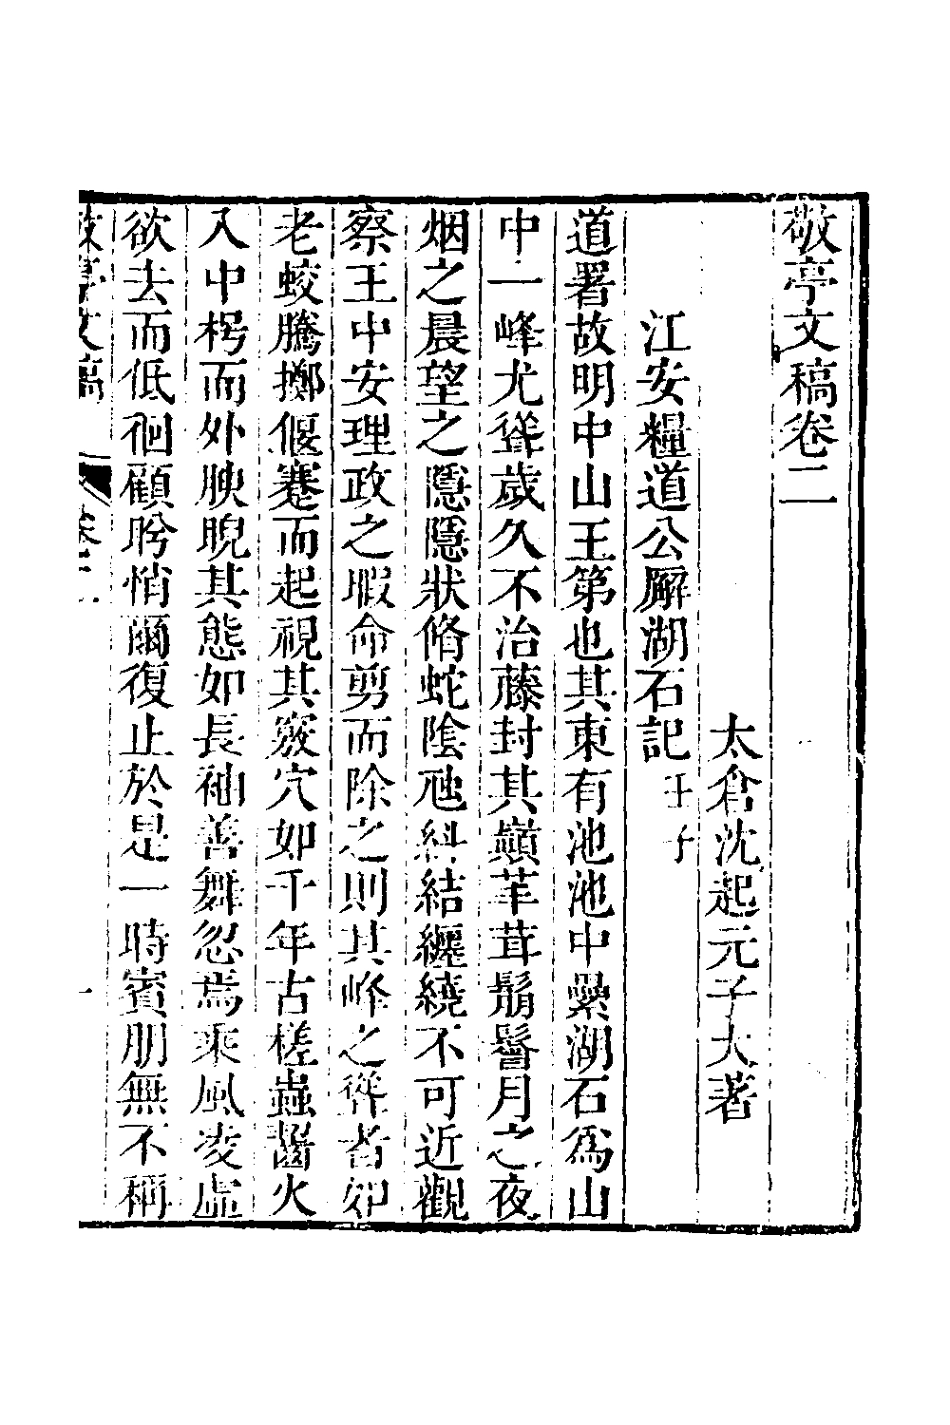 敬亭文稿卷二
太倉沈起元子大著
江安糧道公廨湖石記壬子
道署故明中山王第也其東有池池中纍湖石爲山
中一峰尤聳歲久不治藤封其巔苹茸鬅鬙月之夜
烟之晨望之隱隱狀脩蛇陰虺糾結纏繞不可近觀
察王中安理政之暇命剪而除之則其峰之聳者如
老蛟騰擲偃蹇而起視其竅穴如千年古槎蟲齧火
入中楞而外腴睨其態如長袖善舞忽焉乘風凌虛
欲去而低徊顧盻悄爾復止於是一時賓朋無不稱
敬亭文稿 卷二 一